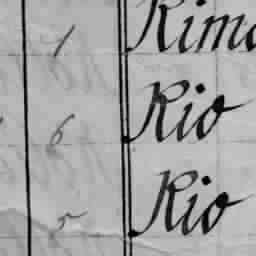 1 Rima
6 Rio
5 Rio